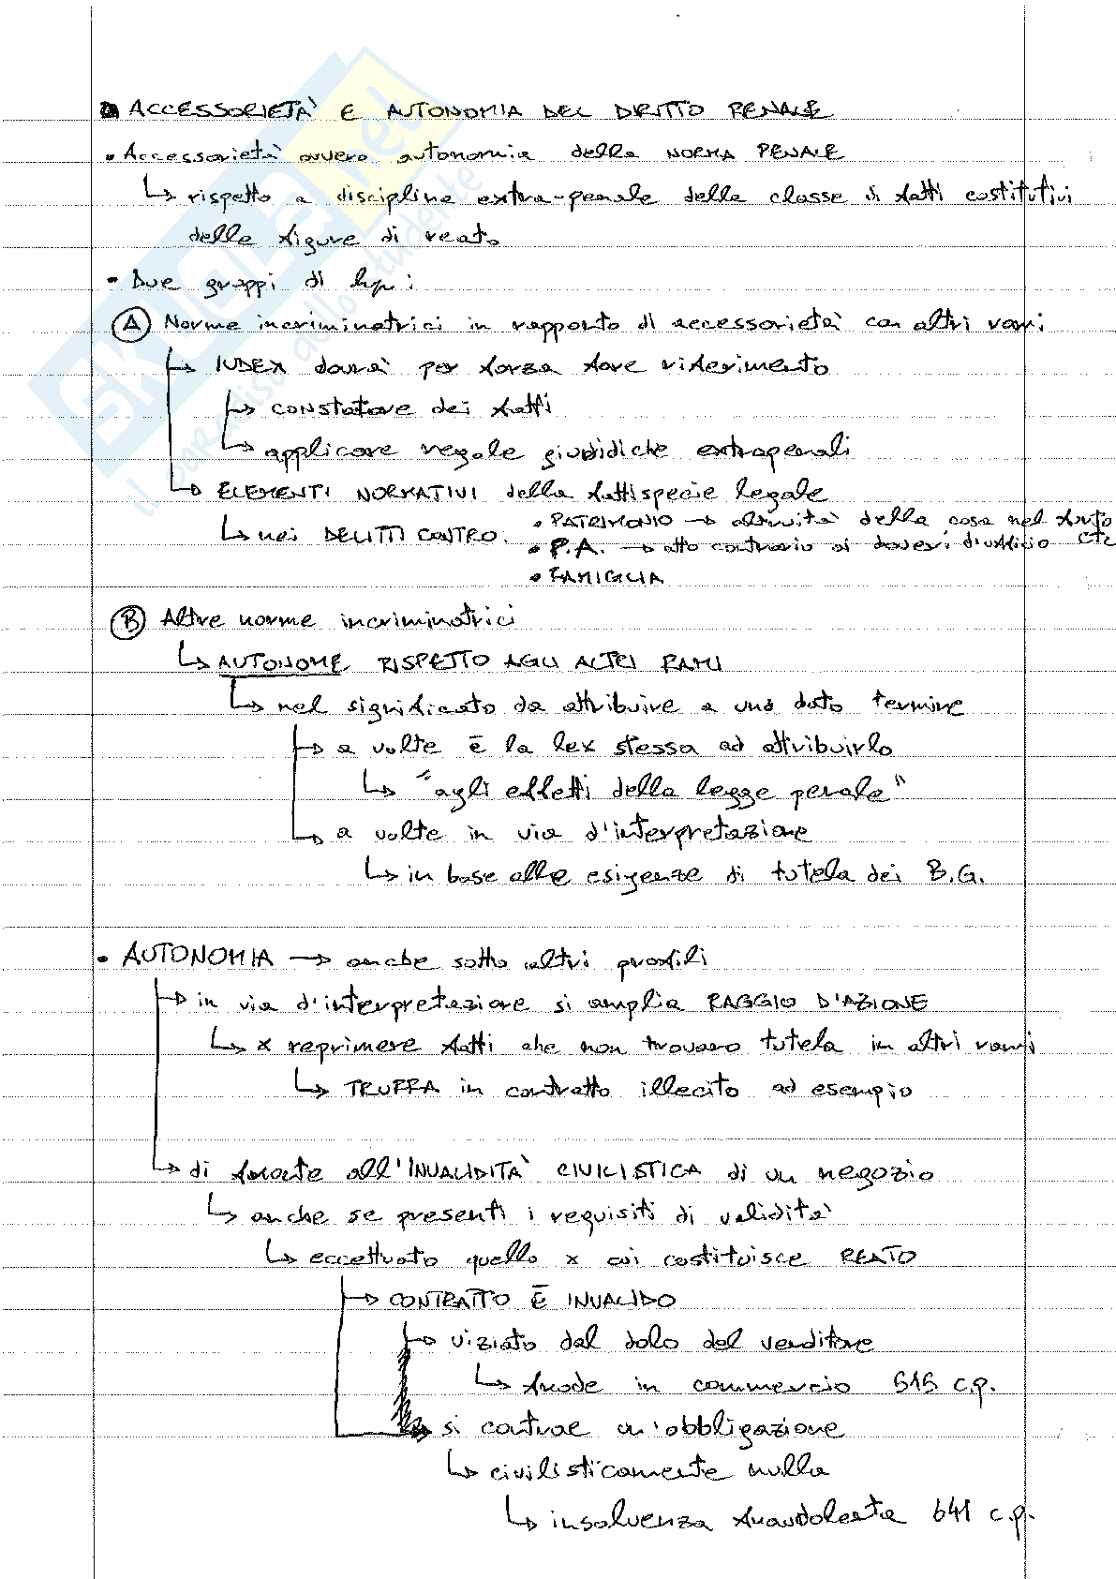 ACCESSORIETÀ E AUTONOMIA DEL DIRITTO PENALE
• Accessorietà ovvero autonomia della NORMA PENALE
↳ rispetto a disciplina extra-penale della classe di fatti costitutivi
delle figure di reato
• Due gruppi di hp:
Ⓐ Norme incriminatrici in rapporto di accessorietà con altri rami
↳ IUDEX dovrà per forza fare riferimento
↳ constatare dei fatti
↳ applicare regole giuridiche extrapenali
↳ ELEMENTI NORMATIVI della fattispecie legale
↳ nei DELITTI CONTRO. • PATRIMONIO → altruità della cosa nel furto
• P.A. → atto contrario ai doveri d'ufficio etc
• FAMIGLIA
Ⓑ Altre norme incriminatrici
↳ AUTONOME RISPETTO AGLI ALTRI RAMI
↳ nel significato da attribuire a una dato termine
↳ a volte è la lex stessa ad attribuirlo
↳ "agli effetti della legge penale"
↳ a volte in via d'interpretazione
↳ in base alle esigenze di tutela dei B.G.
• AUTONOMIA → anche sotto altri profili
↳ in via d'interpretazione si amplia RAGGIO D'AZIONE
↳ x reprimere fatti che non trovano tutela in altri rami
↳ TRUFFA in contratto illecito ad esempio
↳ di fronte all'INVALIDITÀ CIVILISTICA di un negozio
↳ anche se presenti i requisiti di validità
↳ eccettuato quello x cui costituisce REATO
↳ CONTRATTO È INVALIDO
↳ viziato dal dolo del venditore
↳ frode in commercio 515 c.p.
↳ si contrae un'obbligazione
↳ civilisticamente nulla
↳ insolvenza fraudolenta 641 c.p.
SKUOLA.net
il paradiso dello studente